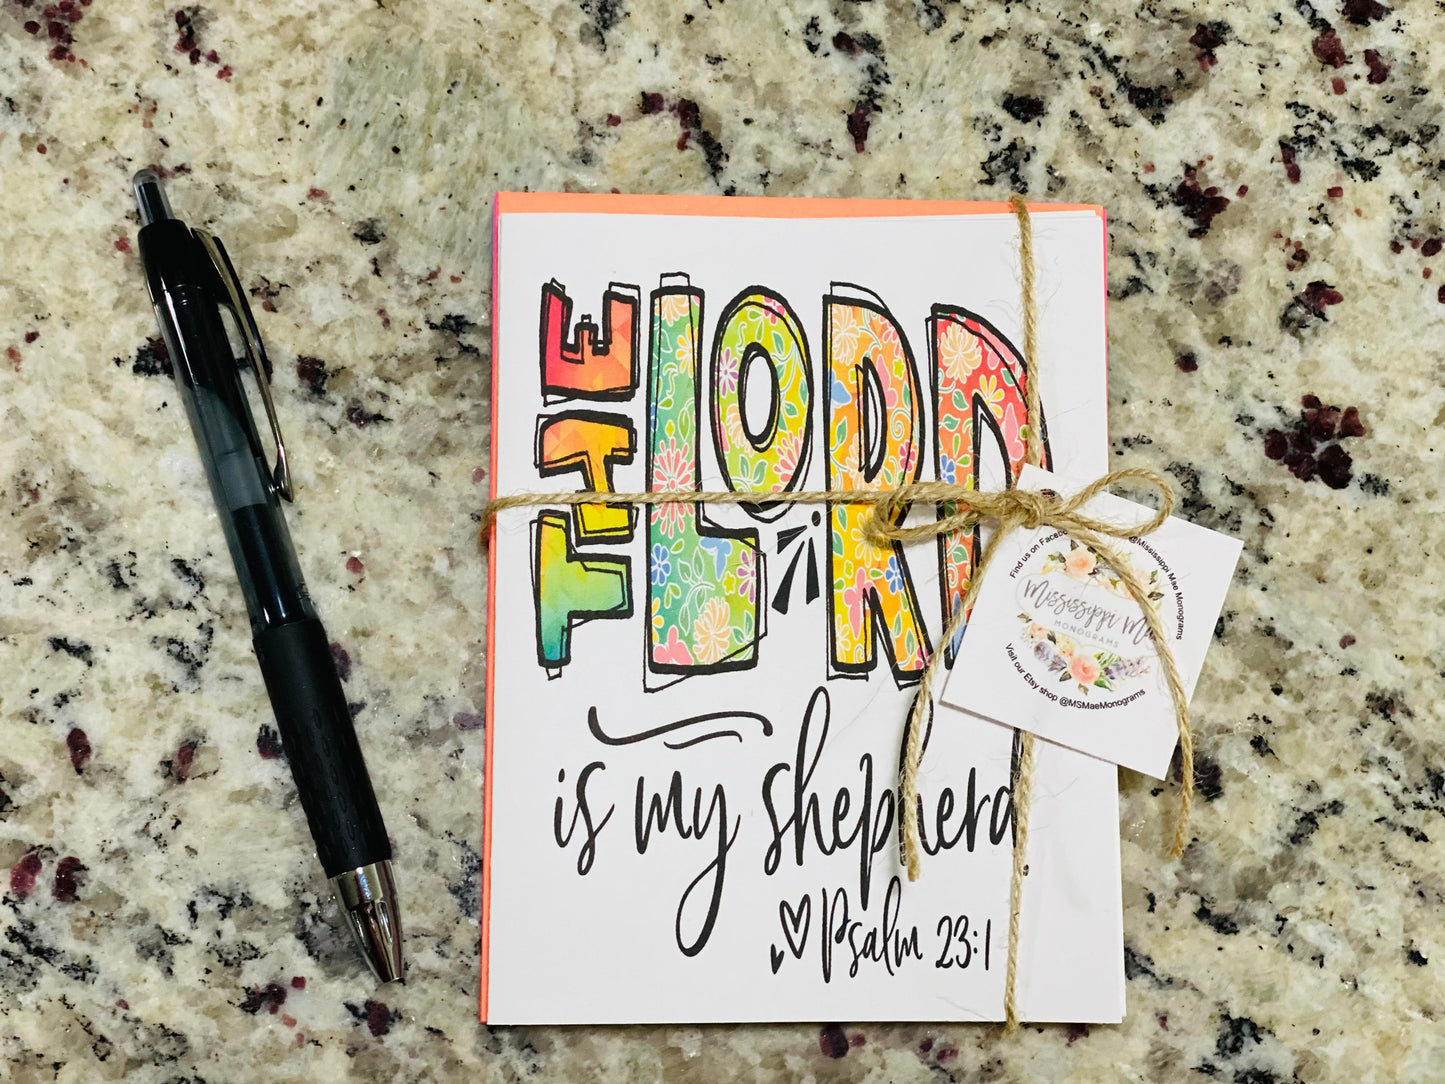 THE LORD
is my shepherd.
Psalm 23:1
Find us on
@Mississippi Mae Monograms
Mississippi
MONOGRAMS
Visit our Etsy shop @MSMaeMonograms